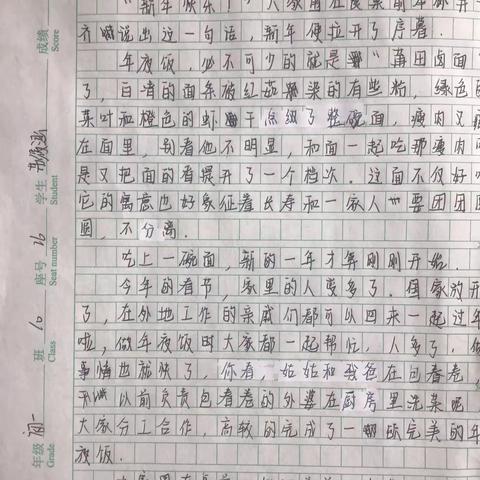 "新年快乐！"人家围在饭桌前年你开
齐声说出这一句话，新年便拉开了序幕。
年夜饭，必不可少的就是"莆田卤面
了，白净的面条被红菇染的有些粉，绿色的
菜叶和橙色的虾干点缀了整碗面，瘦肉又藏
在面里，别看他不明显，和面一起吃那瘦肉可
是又把面的香提开了一个档次。这面不仅好吃
它的寓意也好象征着长寿和一家人要团团圆
圆，不分离。
吃上一碗面，新的一年才算刚刚开始。
今年的春节，家里的人变多了。国家放开
了，在外地工作的亲戚们都可以回来一起过年
啦，做年夜饭时大家都一起帮忙，人多了，做
事情也就快了，你看，姑姑和我爸在包春卷，
以前负责包春卷的外婆在厨房里洗菜呢
大家分工合作，高较的完成了一顿完美的年
夜饭。
成绩 Score
学生 Student
座号 16 Seat number
班 10 Class
年级 初一 Grade